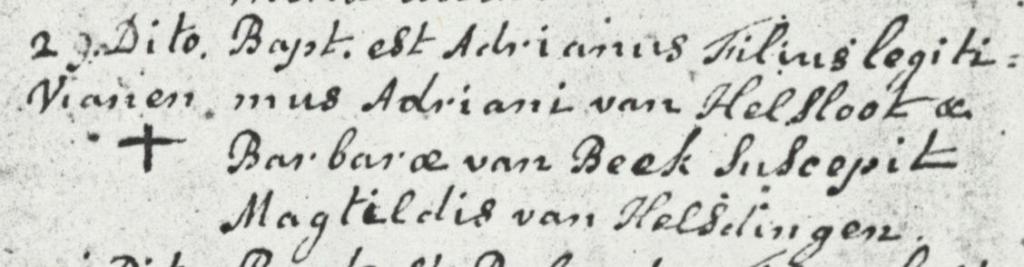 29. Dito. Bapt. est Adrianus Filius legiti=
Vianen mus Adriani van Helsloot &
Barbaræ van Beek Suscepit
Magtildis van Helsdingen.